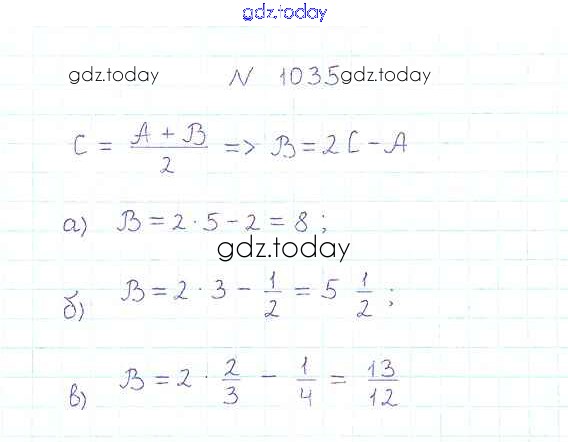 gdz.today
gdz.today N 1035 gdz.today
C = (A + B)/2 => B = 2C - A
а) B = 2 · 5 - 2 = 8 ;
gdz.today
б) B = 2 · 3 - 1/2 = 5 1/2 ;
в) B = 2 · 2/3 - 1/4 = 13/12